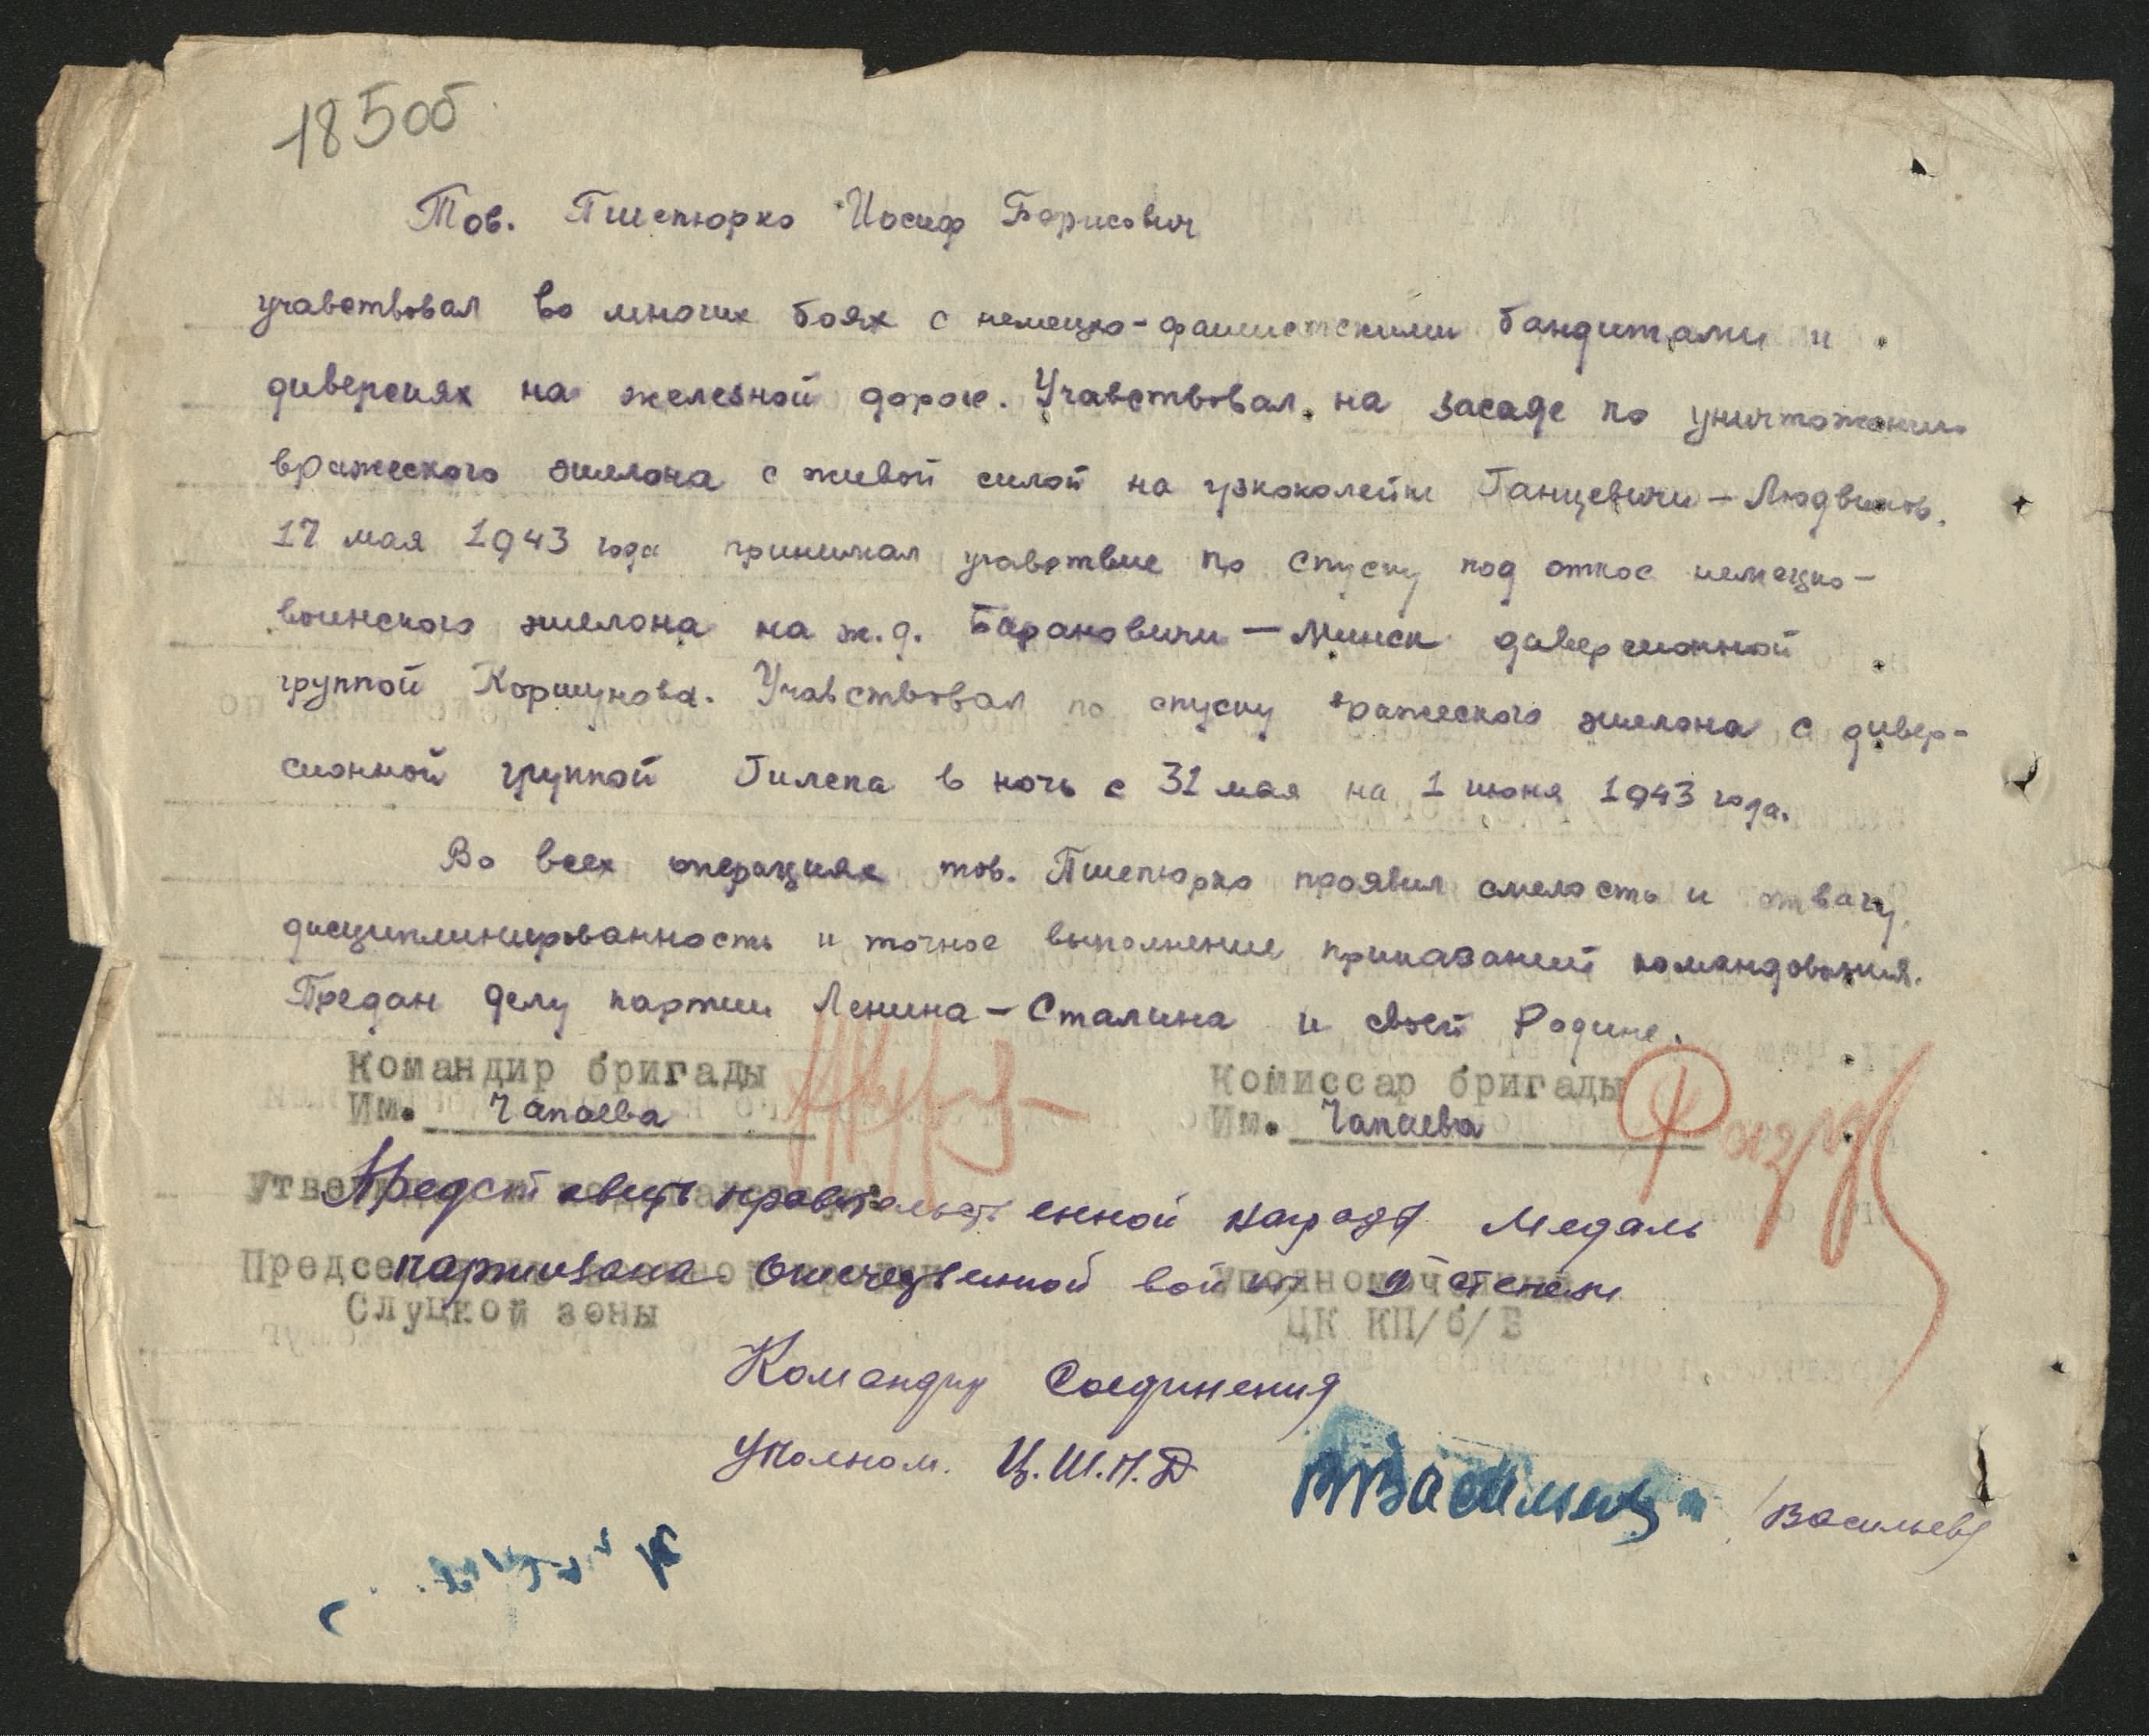 185об
Тов. Пшепюрко Иосиф Борисович
учавствовал во многих боях с немецко-фашистскими бандитами и
диверсиях на железной дороге. Учавствовал на засаде по уничтожению
вражеского эшелона с живой силой на узкоколейке Ганцевичи – Людвиков.
17 мая 1943 года принимал учавствие по спуску под откос немецко-
воинского эшелона на ж.д. Барановичи – Минск диверсионной
группой Коршунова. Учавствовал по спуску вражеского эшелона с дивер-
сионной группой Гилепа в ночь с 31 мая на 1 июня 1943 года.
Во всех операциях тов. Пшепюрко проявил смелость и отвагу,
дисциплинированность и точное выполнение приказаний командования.
Предан делу партии Ленина – Сталина и своей Родине.
Командир бригады Комиссар бригады
Им. Чапаева Им. Чапаева
Представить правительственной награде Медаль
партизана Отечественной войны II степени
Слуцкой зоны ЦК КП/б/Б
Командир Соединения
Уполном. Ц.Ш.П.Д
/Васильев/